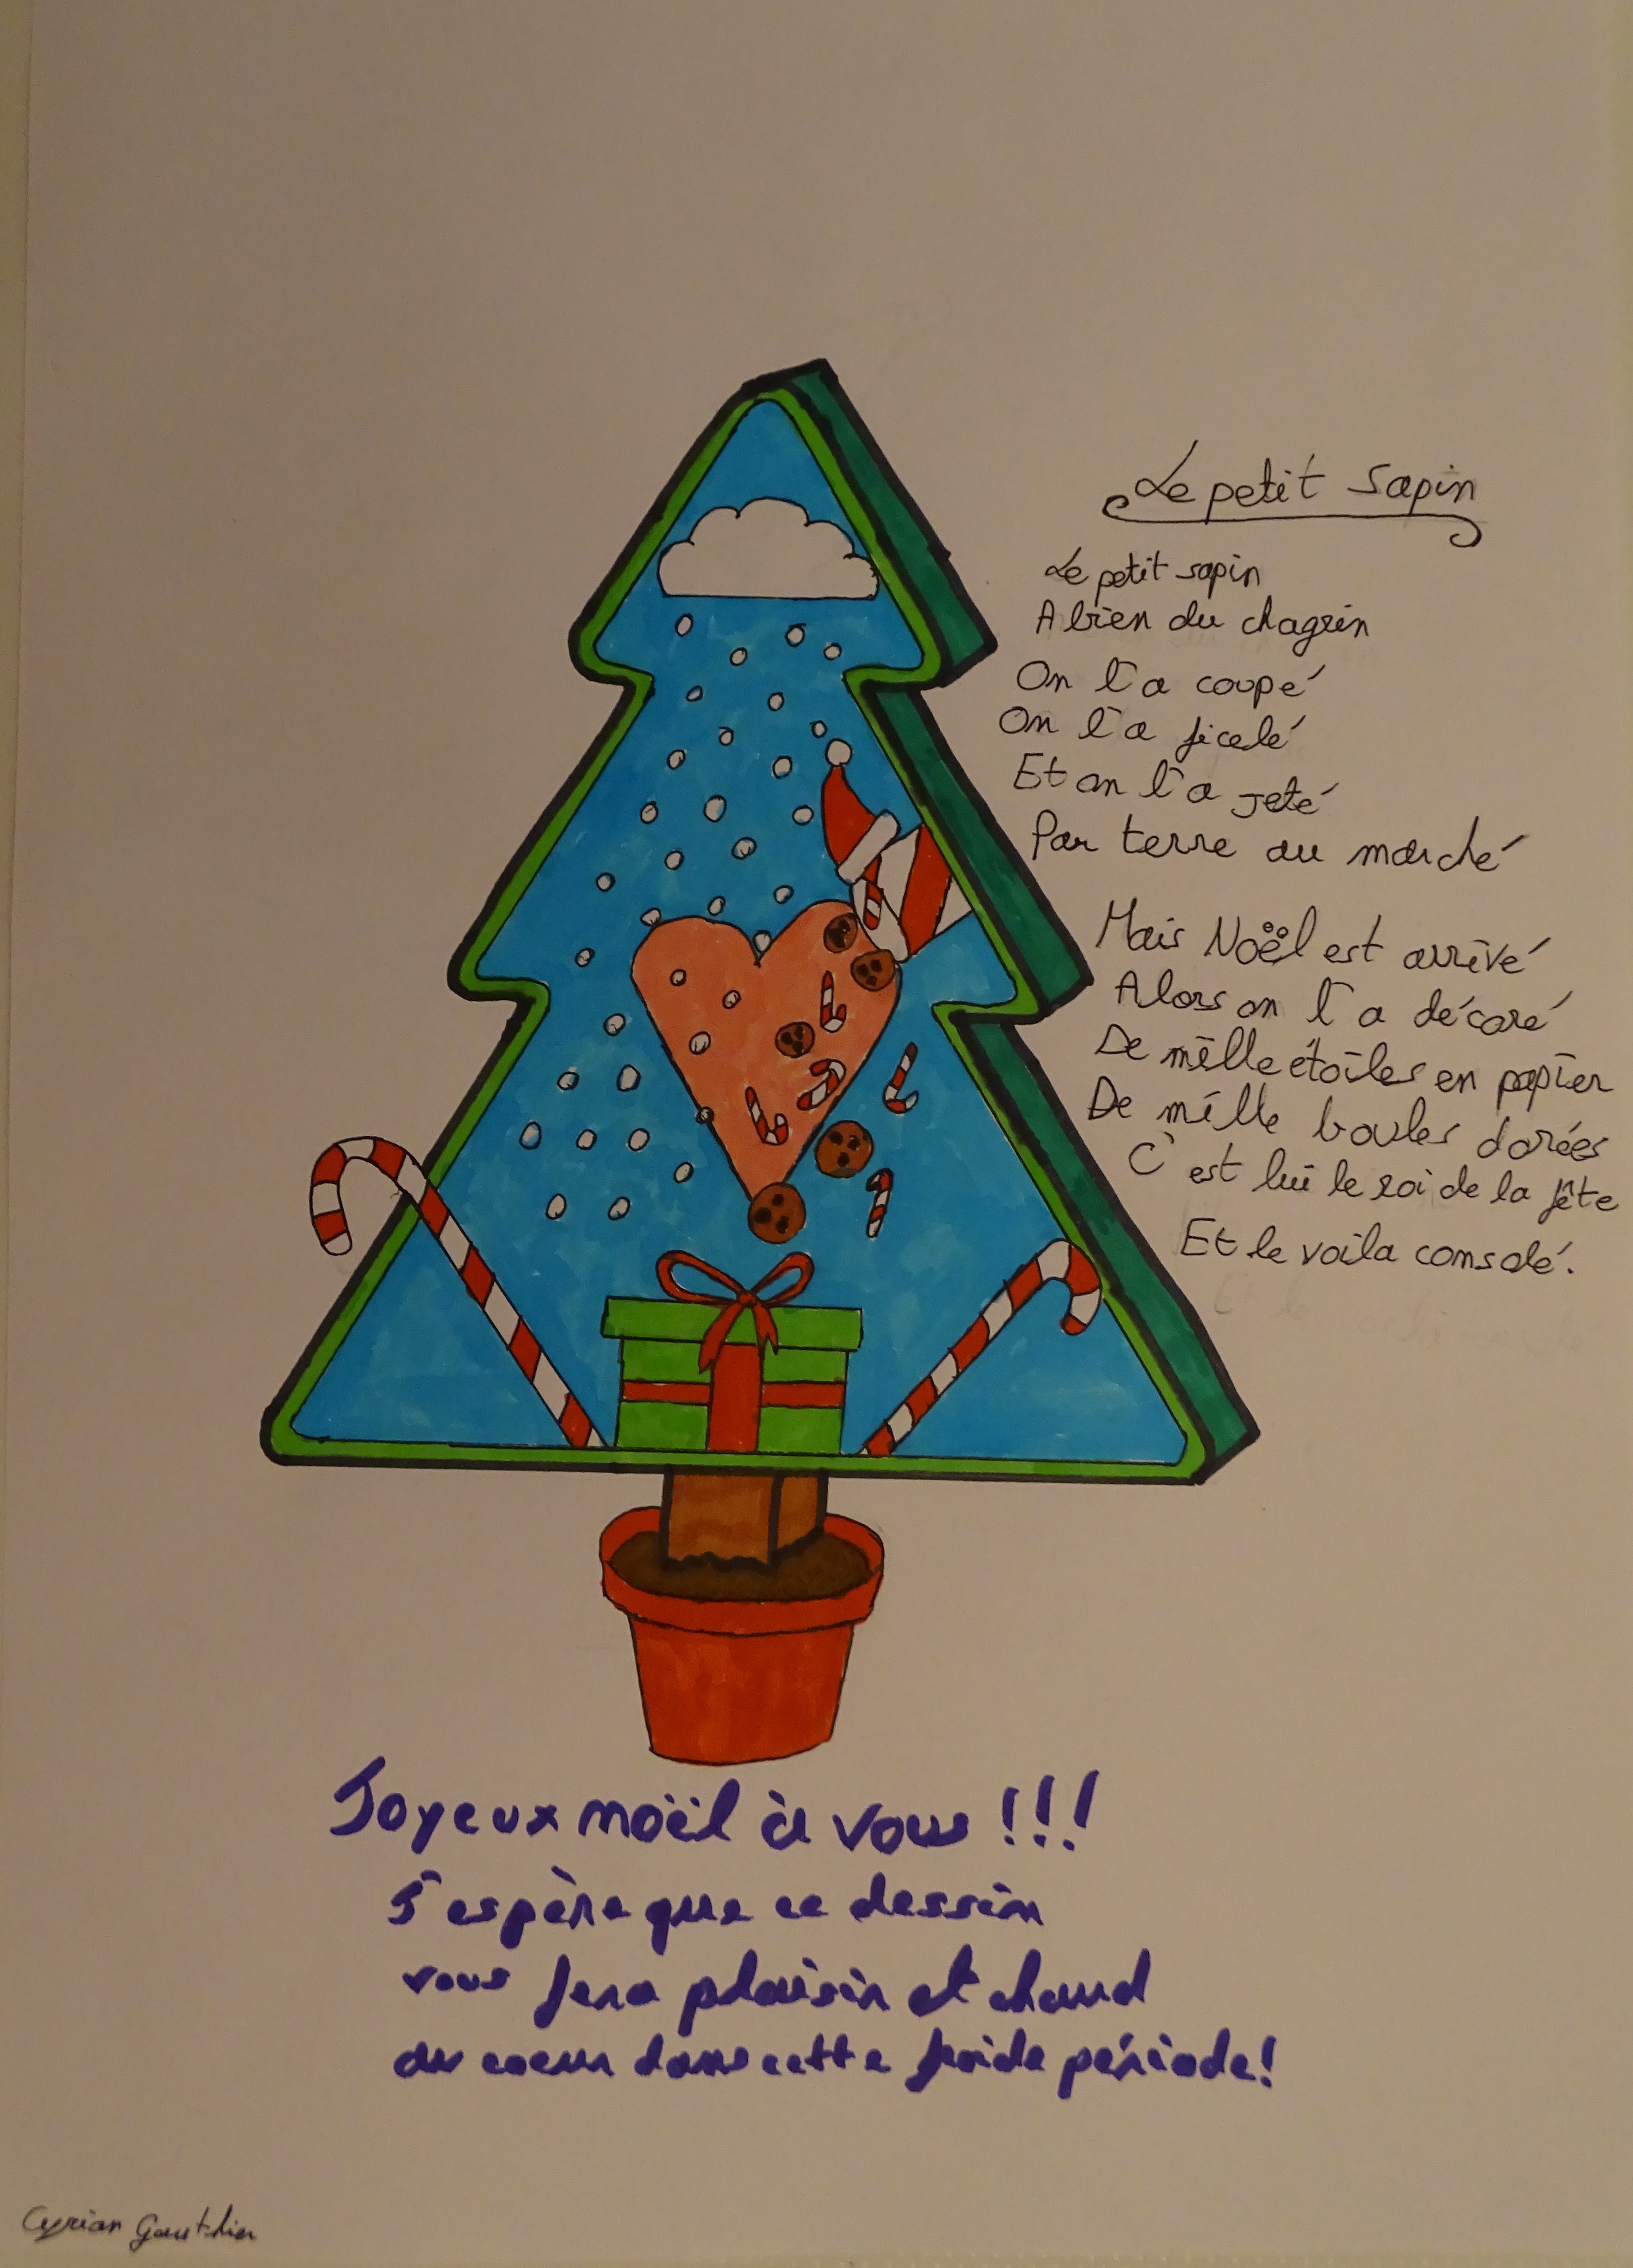 Le petit sapin
Le petit sapin
A bien du chagrin
On l'a coupé
On l'a ficelé
Et on l'a jeté
Par terre au marché
Mais Noël est arrivé
Alors on l'a décoré
De mille étoiles en papier
De mille boules dorées
C'est lui le roi de la fête
Et le voila consolé.
Joyeux noël à vous !!!
J'espère que ce dessin
vous fera plaisir et chaud
au coeur dans cette froide période!
Cyrian Gauthier